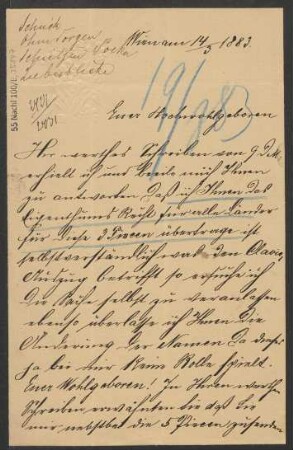 Schick
Ohne Sorgen
Liebesblicke
55 Nachl 100/
Wien am 14/5 1883.
19/5 83
Euer Hochwohlgeboren
Ihr werthes Schreiben von 9. D. M.
erhielt ich und beeile mich Ihnen
zu antworten, daß ich Ihnen das
Eigenthums Recht für alle Länder
für diese 3 Piecen übertrage ist
selbstverständlich was den Clavier
Auszug betrifft so ersuche ich
Sie diese selbst zu veranlassen
ebenso überlasse ich Ihnen die
Änderung der Namen da dieses
ja bei mir keine Rolle spielt.
Euer Wohlgeboren! In Ihrem werthen
Schreiben erwähnten Sie daß Sie
mir nebstbei die 5 Piecen zusenden